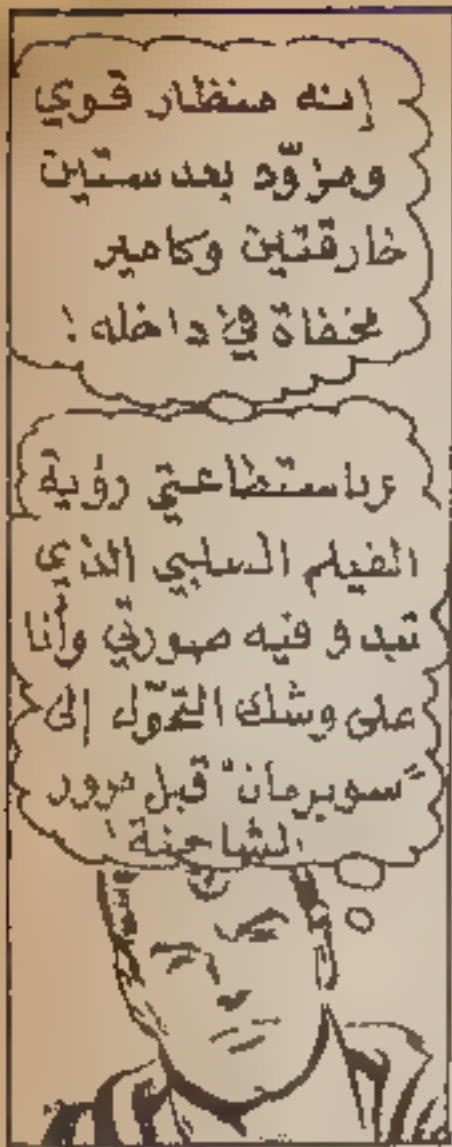 إنه منظار قوي
ومزوّد بعدستين
خارقتين وكامير
مخفاة في داخله!
وباستطاعتي رؤية
الفيلم السلبي الذي
تبدو فيه صورتي وأنا
على وشك التحوّل إلى
"سوبرمان" قبل مرور
الشاحنة!